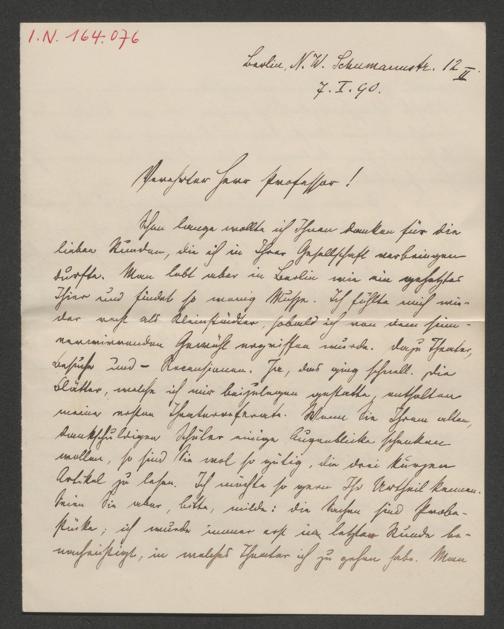 I.N. 164.076
Berlin, N.W. Schumannstr. 12 II.
7. I. 90.
Verehrter Herr Professor!
Schon lange wollte ich Ihnen danken für die
lieben Stunden, die ich in Ihrer Gesellschaft verbringen
durfte. Man lebt aber in Berlin wie ein gehetztes
Thier und findet so wenig Musse. Ich fühlte mich wie-
der recht als Kleinstädter, sobald ich von dem sinn-
verwirrenden Gewühl ergriffen wurde. Dazu Theater,
Besuche und – Recensionen. Ja, das ging schnell. Die
Blätter, welche ich mir beizulegen gestatte, enthalten
meine ersten Theaterreferate. Wenn Sie Ihrem alten,
dankschuldigen Schüler einige Augenblicke schenken
wollen, so sind Sie wol so gütig, die drei kurzen
Artikel zu lesen. Ich möchte so gern Ihr Urtheil kennen.
Seien Sie aber, bitte, milde: die Sachen sind Probe-
stücke; ich wurde immer erst in letzter Stunde be-
nachrichtigt, in welches Theater ich zu gehen habe. Man